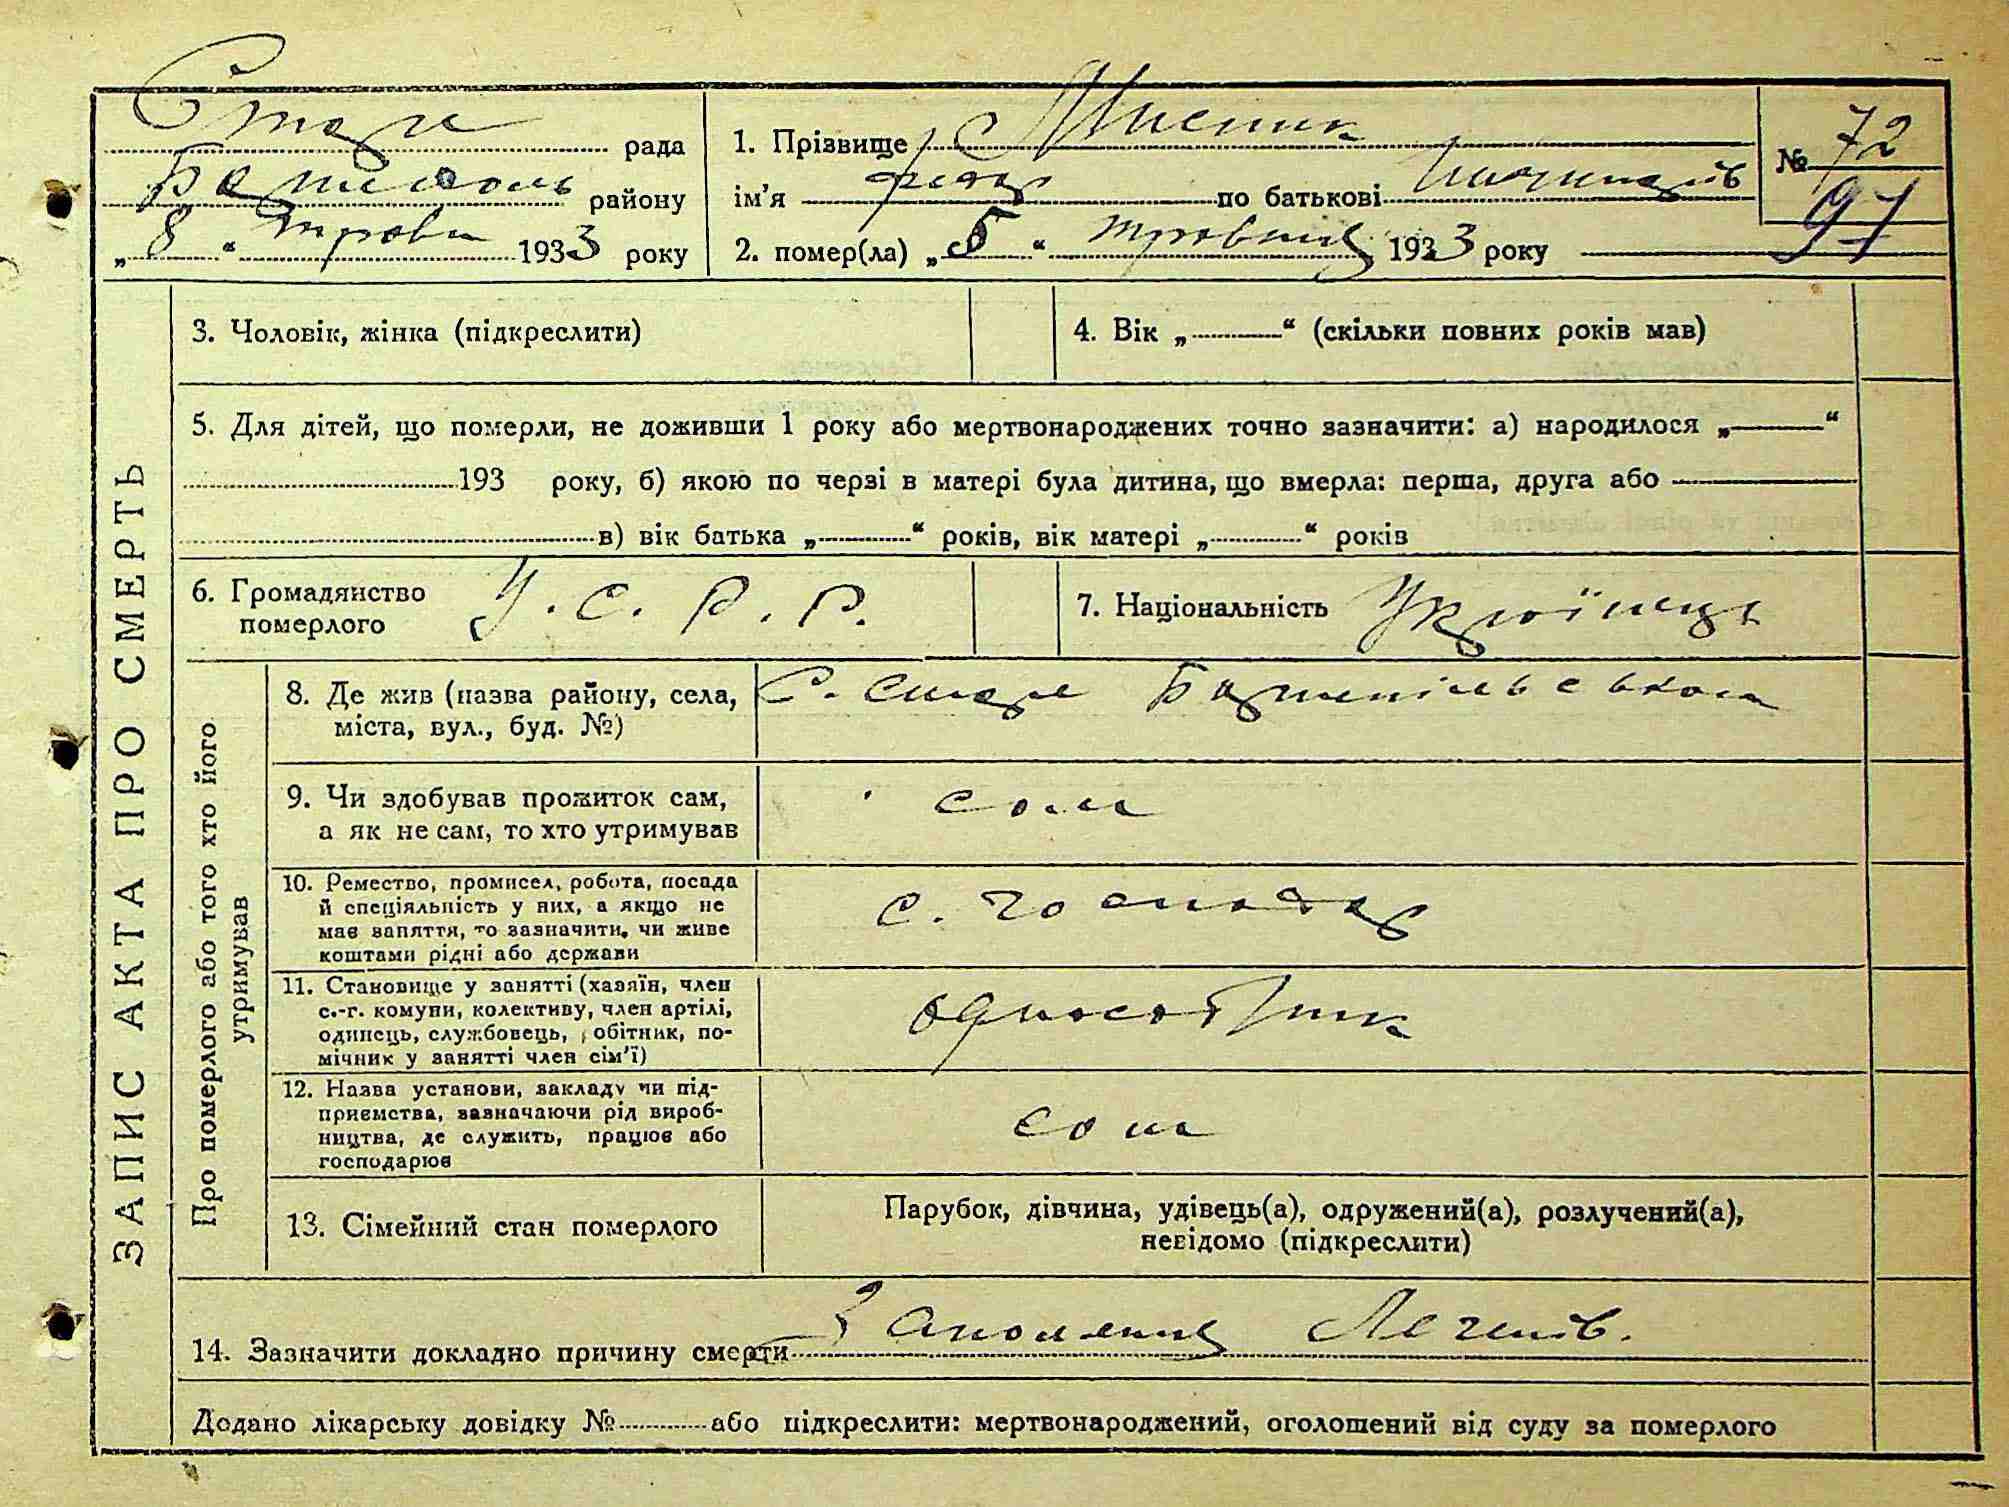 Стара рада
Бориспіль району
„ 8 “ травн 1933 року
1. Прізвище Мисник
ім’я Федор по батькові
2. помер(ла) „ 5 “ травння 1933 року
№ 72
97
ЗАПИС АКТА ПРО СМЕРТЬ
3. Чоловік, жінка (підкреслити)
4. Вік „ “ (скільки повних років мав)
5. Для дітей, що померли, не доживши 1 року або мертвонароджених точно зазначити: а) народилося „ “
193 року, б) якою по черзі в матері була дитина, що вмерла: перша, друга або
в) вік батька „ “ років, вік матері „ “ років
6. Громадянство
померлого
У. С. Р. Р.
7. Національність Українець
Про померлого або того хто його
утримував
8. Де жив (назва району, села,
міста, вул., буд. №)
С. Старе Бориспільського
9. Чи здобував прожиток сам,
а як не сам, то хто утримував
сам
10. Ремество, промисел, робота, посада
й спеціяльність у них, а якщо не
має заняття, то зазначити, чи живе
коштами рідні або держави
с. господар
11. Становище у занятті (хазяїн, член
с.-г. комуни, колективу, член артілі,
одинець, службовець, робітник, по-
мічник у занятті член сім’ї)
однособник
12. Назва установи, закладу чи під-
приємства, зазначаючи рід вироб-
ництва, де служить, працює або
господарює
сам
13. Сімейний стан померлого
Парубок, дівчина, удівець(а), одружений(а), розлучений(а),
невідомо (підкреслити)
14. Зазначити докладно причину смерти Запалення Легенів.
Додано лікарську довідку № або підкреслити: мертвонароджений, оголошений від суду за померлого